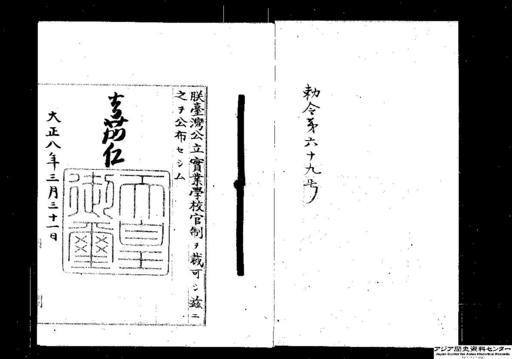 勅令第六十九号
朕臺灣公立實業學校官制ヲ裁可シ茲ニ
之ヲ公布セシム
嘉仁
天皇御璽
大正八年三月三十一日
アジア歴史資料センター
Japan Center for Asian Historical Records